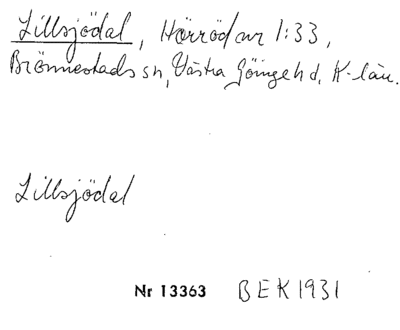 Lillsjödal, Hörröd nr 1:33,
Brönnestads sn, Västra Göinge hd, K-län.
Lillsjödal
Nr 13363 BEK 1931